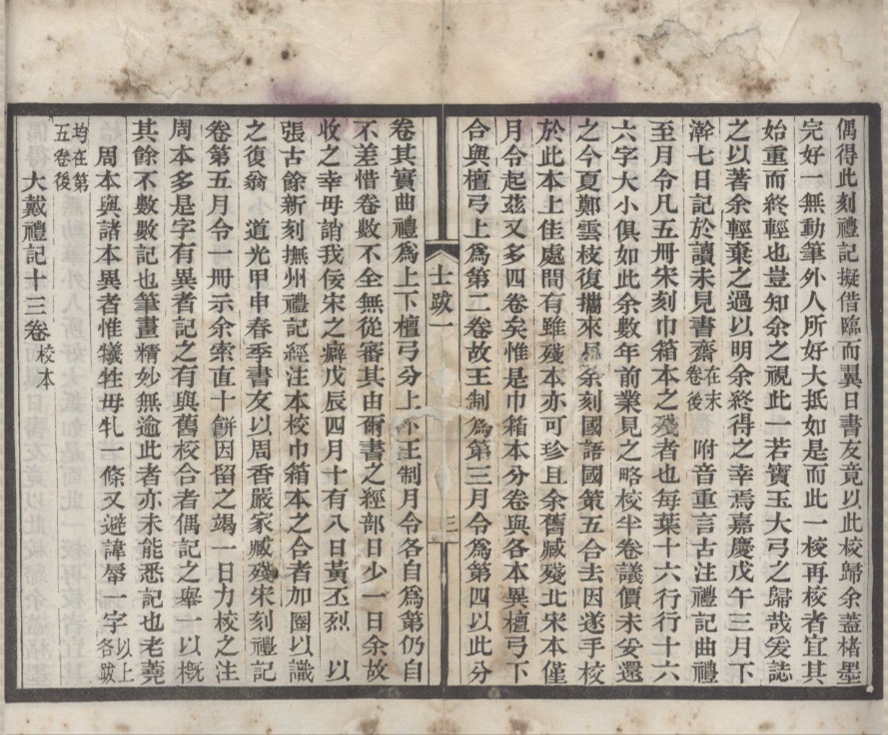 偶得此刻禮記擬借臨而翼日書友竟以此校歸余葢楮墨
完好一無動筆外人所好大抵如是而此一校再校者宜其
始重而終輕也豈知余之視此一若寶玉大弓之歸哉爰誌
之以著余輕棄之過以明余終得之幸焉嘉慶戊午三月下
澣七日記於讀未見書齋在末卷後　附音重言古注禮記曲禮
至月令凡五冊宋刻巾箱本之殘者也每葉十六行行十六
六字大小俱如此余數年前業見之略校半卷議價未妥還
之今夏鄭雲枝復攜來易余刻國語國策五合去因遂手校
於此本上佳處間有雖殘本亦可珍且余舊臧殘北宋本僅
月令起茲又多四卷矣惟是巾箱本分卷與各本異檀弓下
合與檀弓上為第二卷故王制為第三月令為第四以此分
士跋一
三
卷其實曲禮為上下檀弓分上下王制月令各自為第仍自
不差惜卷數不全無從審其由爾書之經部日少一日余故
收之幸毋誚我佞宋之癖戊辰四月十有八日黃丕烈　以
張古餘新刻撫州禮記經注本校巾箱本之合者加圈以識
之復翁　道光甲申春季書友以周香嚴家臧殘宋刻禮記
卷第五月令一冊示余索直十餅因留之竭一日力校之注
周本多是字有異者記之有與舊校合者偶記之舉一以概
其餘不數數記也筆畫精妙無逾此者亦未能悉記也老蕘
周本與諸本異者惟犧牲毋牝一條又避諱㬰一字以上各跋
均在第五卷後
大戴禮記十三卷校本